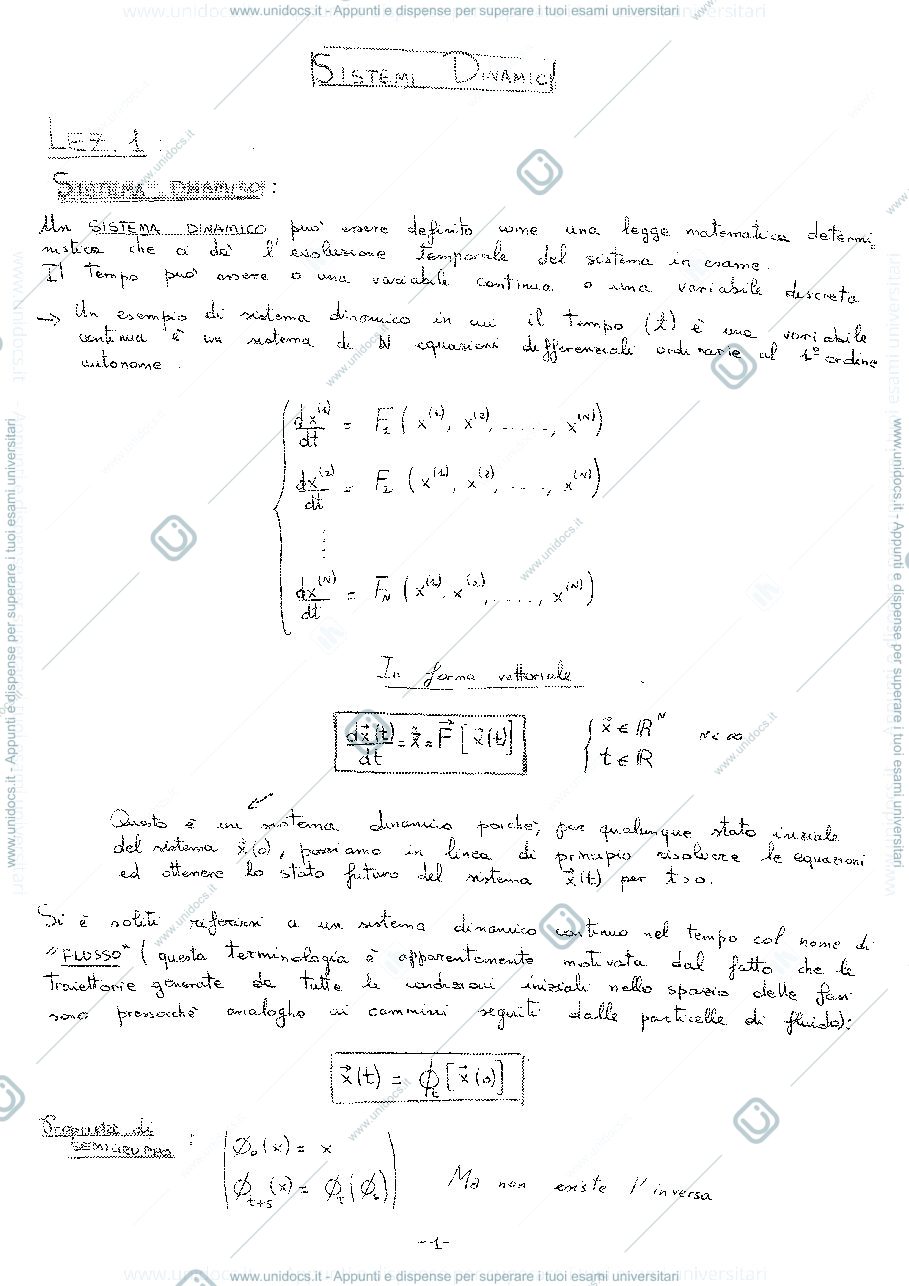 www.unidocs.it - Appunti e dispense per superare i tuoi esami universitari
SISTEMI DINAMICI
LEZ. 1 :
SISTEMA DINAMICO :
Un SISTEMA DINAMICO può essere definito come una legge matematica determi-
nistica che ci dà l'evoluzione temporale del sistema in esame.
Il tempo può essere o una variabile continua o una variabile discreta
→ Un esempio di sistema dinamico in cui il tempo (t) è una variabile
continua è un sistema di N equazioni differenziali ordinarie al 1° ordine
autonome.
dx⁽¹⁾/dt = F₁ ( x⁽¹⁾, x⁽²⁾, ......, x⁽ᴺ⁾)
dx⁽²⁾/dt = F₂ ( x⁽¹⁾, x⁽²⁾, ...., x⁽ᴺ⁾)
⋮
dx⁽ᴺ⁾/dt = F_N ( x⁽¹⁾, x⁽²⁾, ......, x⁽ᴺ⁾)
In forma vettoriale
dx⃗(t)/dt = ẋ⃗ = F⃗ [x⃗(t)] { x⃗ ∈ ℝᴺ N < ∞
t ∈ ℝ
Questo è un sistema dinamico perché, per qualunque stato iniziale
del sistema x⃗(0), possiamo in linea di principio risolvere le equazioni
ed ottenere lo stato futuro del sistema x⃗(t) per t>0.
Si è soliti riferirsi a un sistema dinamico continuo nel tempo col nome di
"FLUSSO" (questa terminologia è apparentemente motivata dal fatto che le
traiettorie generate da tutte le condizioni iniziali nello spazio delle fasi
sono pressocché analoghe ai cammini seguiti dalle particelle di fluido):
x⃗(t) = ϕ_t [x⃗(0)]
Proprietà di
SEMIGRUPPO : ϕ₀(x) = x
ϕ_{t+s}(x) = ϕ_t(ϕₛ) Ma non esiste l'inversa
-1-
www.unidocs.it - Appunti e dispense per superare i tuoi esami universitari